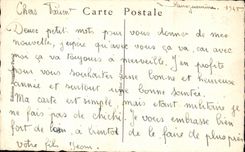 Chers Parents Carte Postale
Deux petit mots pour vous donner de mes
nouvelles, j'espère que avec vous ça va car avec
moi ça va toujours à merveille. J'en profite
pour vous souhaiter une bonne et heureuse
année et surtout une bonne santée.
Ma carte est simple mais étant militaire je
ne fais pas de chichi. Je vous embrasse bien
fort de loin, à bientôt de le faire de plus près
votre fils Jean